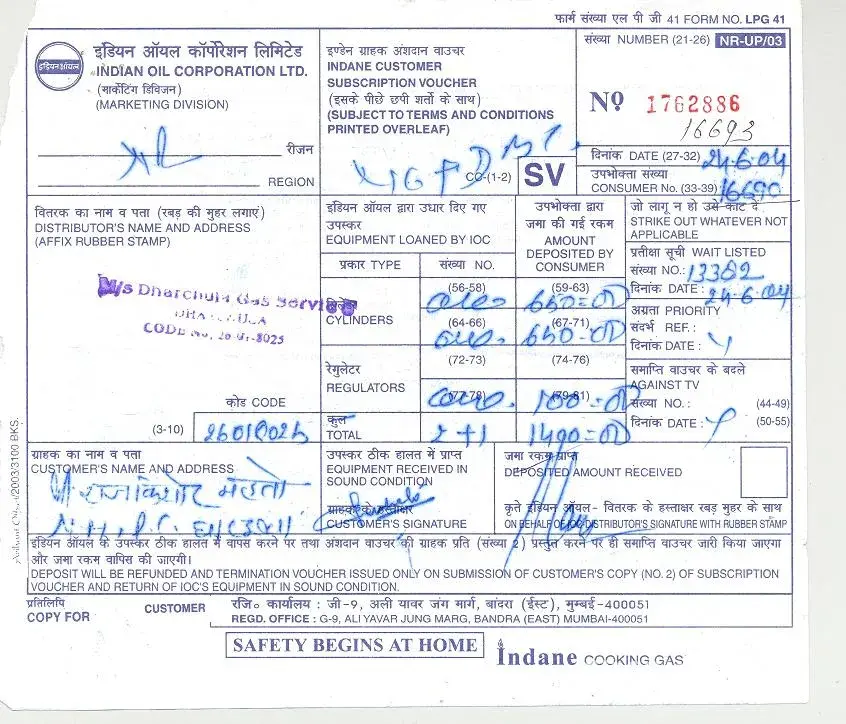 फार्म संख्या एल पी जी 41 FORM NO. LPG 41
इंडियनऑयल
इंडियन ऑयल कॉर्पोरेशन लिमिटेड
INDIAN OIL CORPORATION LTD.
(मार्केटिंग डिविजन)
(MARKETING DIVISION)
रीजन
REGION
इण्डेन ग्राहक अंशदान वाउचर
INDANE CUSTOMER
SUBSCRIPTION VOUCHER
(इसके पीछे छपी शर्तो के साथ)
(SUBJECT TO TERMS AND CONDITIONS
PRINTED OVERLEAF)
CC-(1-2) SV
संख्या NUMBER (21-26) NR-UP/03
Nº 1762886
16693
दिनांक DATE (27-32) 24.6.04
उपभोक्ता संख्या
CONSUMER No. (33-39) 16690
वितरक का नाम व पता (रबड़ की मुहर लगाएं)
DISTRIBUTOR'S NAME AND ADDRESS
(AFFIX RUBBER STAMP)
M/s Dharchula Gas Service
DHARCHULA
कोड CODE
(3-10)
इंडियन ऑयल द्वारा उधार दिए गए
उपस्कर
EQUIPMENT LOANED BY IOC
उपभोक्ता द्वारा
जमा की गई रकम
AMOUNT
DEPOSITED BY
CONSUMER
प्रकार TYPE संख्या NO.
(56-58) (59-63)
सिलेंडर
CYLINDERS
(64-66) (67-71)
(72-73) (74-76)
रेगुलेटर
REGULATORS
(77-78) (79-81)
कुल
TOTAL 2+1
जो लागू न हो उसे काट दें
STRIKE OUT WHATEVER NOT
APPLICABLE
प्रतीक्षा सूची WAIT LISTED
संख्या NO.: 13382
दिनांक DATE : 24.6.04
अग्रता PRIORITY
संदर्भ REF. :
दिनांक DATE :
समाप्ति वाउचर के बदले
AGAINST TV
संख्या NO. : (44-49)
दिनांक DATE : (50-55)
ग्राहक का नाम व पता
CUSTOMER'S NAME AND ADDRESS
राजकिशोर महतो
N.H.P.C.
उपस्कर ठीक हालत में प्राप्त
EQUIPMENT RECEIVED IN
SOUND CONDITION
ग्राहक के हस्ताक्षर
CUSTOMER'S SIGNATURE
जमा रकम प्राप्त
DEPOSITED AMOUNT RECEIVED
कृते इंडियन ऑयल- वितरक के हस्ताक्षर रबड़ मुहर के साथ
ON BEHALF OF IOC DISTRIBUTOR'S SIGNATURE WITH RUBBER STAMP
इंडियन ऑयल के उपस्कर ठीक हालत में वापस करने पर तथा अंशदान वाउचर की ग्राहक प्रति (संख्या 2) प्रस्तुत करने पर ही समाप्ति वाउचर जारी किया जाएगा
और जमा रकम वापिस की जाएगी।
DEPOSIT WILL BE REFUNDED AND TERMINATION VOUCHER ISSUED ONLY ON SUBMISSION OF CUSTOMER'S COPY (NO. 2) OF SUBSCRIPTION
VOUCHER AND RETURN OF IOC'S EQUIPMENT IN SOUND CONDITION.
प्रतिलिपि
COPY FOR CUSTOMER
रजि० कार्यालय : जी-9, अली यावर जंग मार्ग, बांदरा (ईस्ट), मुम्बई-400051
REGD. OFFICE : G-9, ALI YAVAR JUNG MARG, BANDRA (EAST) MUMBAI-400051
SAFETY BEGINS AT HOME
Indane COOKING GAS